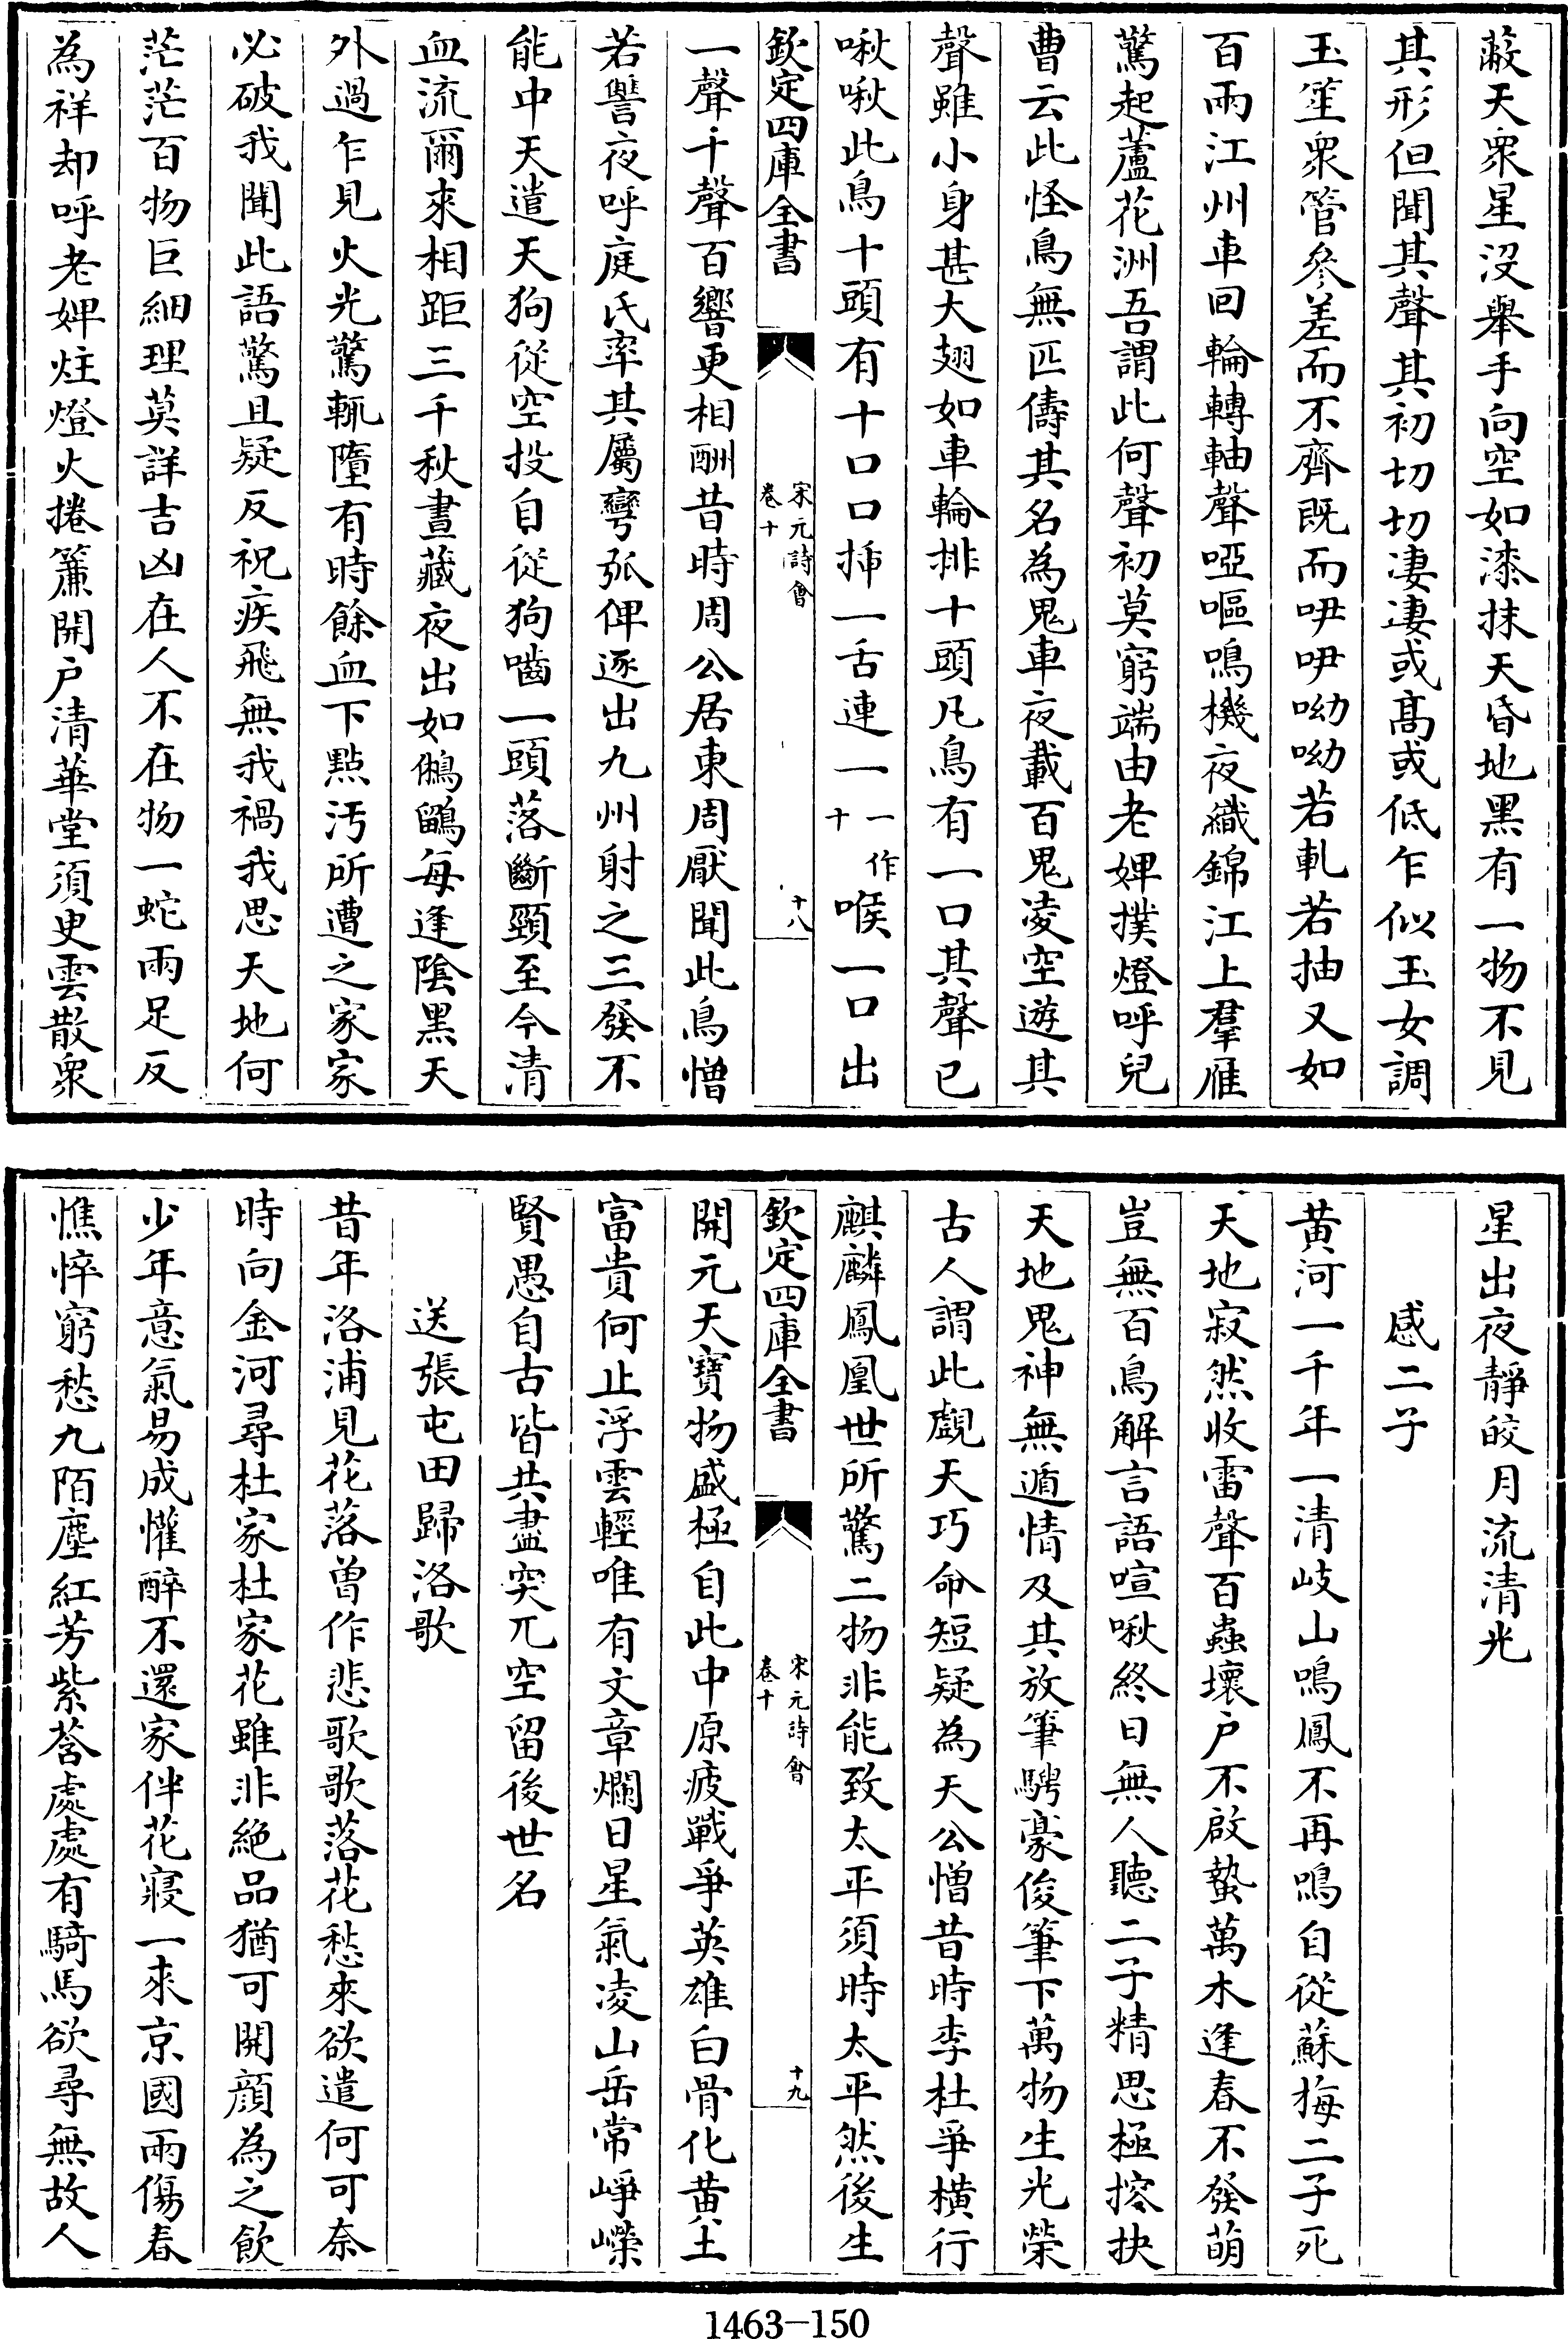 蔽天衆星沒舉手向空如漆抹天昏地黑有一物不見
其形但聞其聲其初切切凄凄或髙或低乍似玉女調
玉笙衆管參差而不齊既而咿咿呦呦若軋若抽又如
百兩江州車回輪轉軸聲啞嘔鳴機夜織錦江上羣雁
驚起蘆花洲吾謂此何聲初莫窮端由老婢撲燈呼兒
曹云此怪鳥無匹儔其名為鬼車夜載百鬼凌空遊其
聲雖小身甚大翅如車輪排十頭凡鳥有一口其聲已
啾啾此鳥十頭有十口口揷一舌連一一作十喉一口出
欽定四庫全書
宋元詩會
卷十
十八
一聲千聲百響更相酬昔時周公居東周厭聞此鳥憎
若讐夜呼庭氏率其屬彎弧俾逐出九州射之三發不
能中天遣天狗從空投自從狗嚙一頭落斷頸至今清
血流爾來相距三千秋晝藏夜出如鵂鶹每逢陰黑天
外過乍見火光驚輒墮有時餘血下點汚所遭之家家
必破我聞此語驚且疑反祝疾飛無我禍我思天地何
茫茫百物巨細理莫詳吉凶在人不在物一蛇兩足反
為祥却呼老婢炷燈火捲簾開户清華堂須臾雲散衆
星出夜靜皎月流清光
感二子
黄河一千年一清岐山鳴鳳不再鳴自從蘇梅二子死
天地寂然收雷聲百蟲壞户不啟蟄萬木逢春不發萌
豈無百鳥解言語喧啾終日無人聽二子精思極搾抉
天地鬼神無遁情及其放筆騁豪俊筆下萬物生光榮
古人謂此覷天巧命短疑為天公憎昔時李杜爭横行
麒麟鳳凰世所驚二物非能致太平須時太平然後生
欽定四庫全書
宋元詩會
卷十
十九
開元天寶物盛極自此中原疲戰爭英雄白骨化黄土
富貴何止浮雲輕唯有文章爛日星氣凌山岳常崢嶸
賢愚自古皆共盡突兀空留後世名
送張屯田歸洛歌
昔年洛浦見花落曾作悲歌歌落花愁來欲遣何可奈
時向金河尋杜家杜家花雖非絶品猶可開顔為之飲
少年意氣易成懽醉不還家伴花寢一來京國兩傷春
憔悴窮愁九陌塵紅芳紫萏處處有騎馬欲尋無故人
1463-150